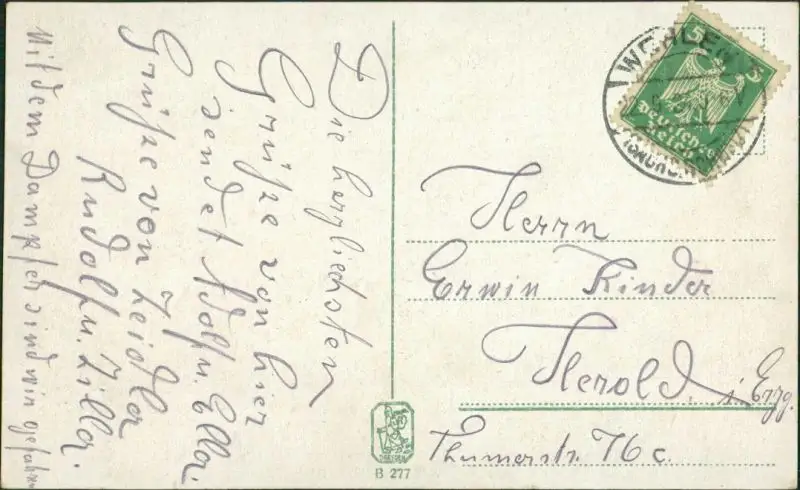 Die herzlichsten
Grüße von hier
sendet Adolf u. Ella.
Grüße von Zeidler
Rudolf u. Zilla.
Mit dem Dampfer sind wir gefahren
5 5
Deutsches
Reich
WEHLEN
Herrn
Erwin Kinder
Herold. i. Erzg.
Thumerstr. 76 c.
DRESDEN
B 277